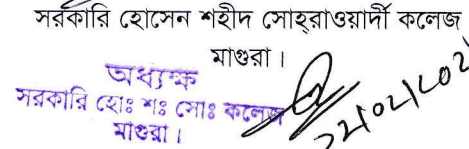 সরকারি হোসেন শহীদ সোহ্‌রাওয়ার্দী কলেজ
মাগুরা।
অধ্যক্ষ
সরকারি হোঃ শঃ সোঃ কলেজ
মাগুরা।